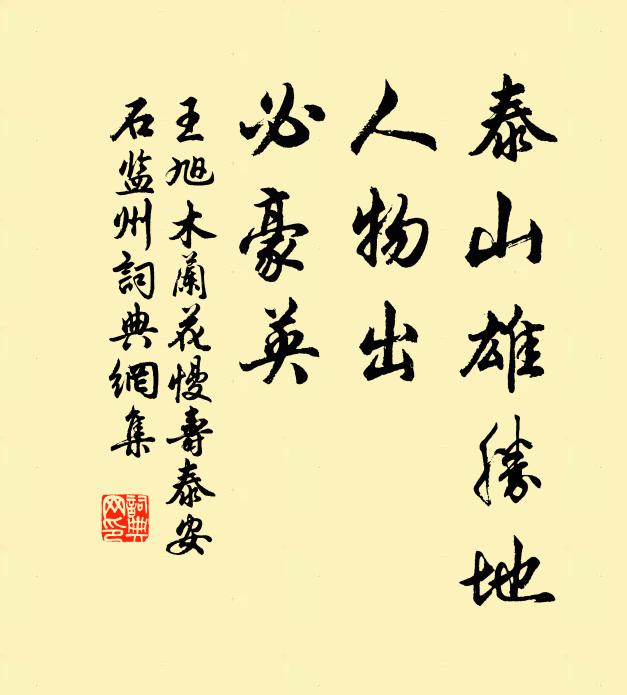 泰山雄勝地
人物出
必豪英
王旭木蘭花慢壽泰安
石监州詞典網集
詞典
网印